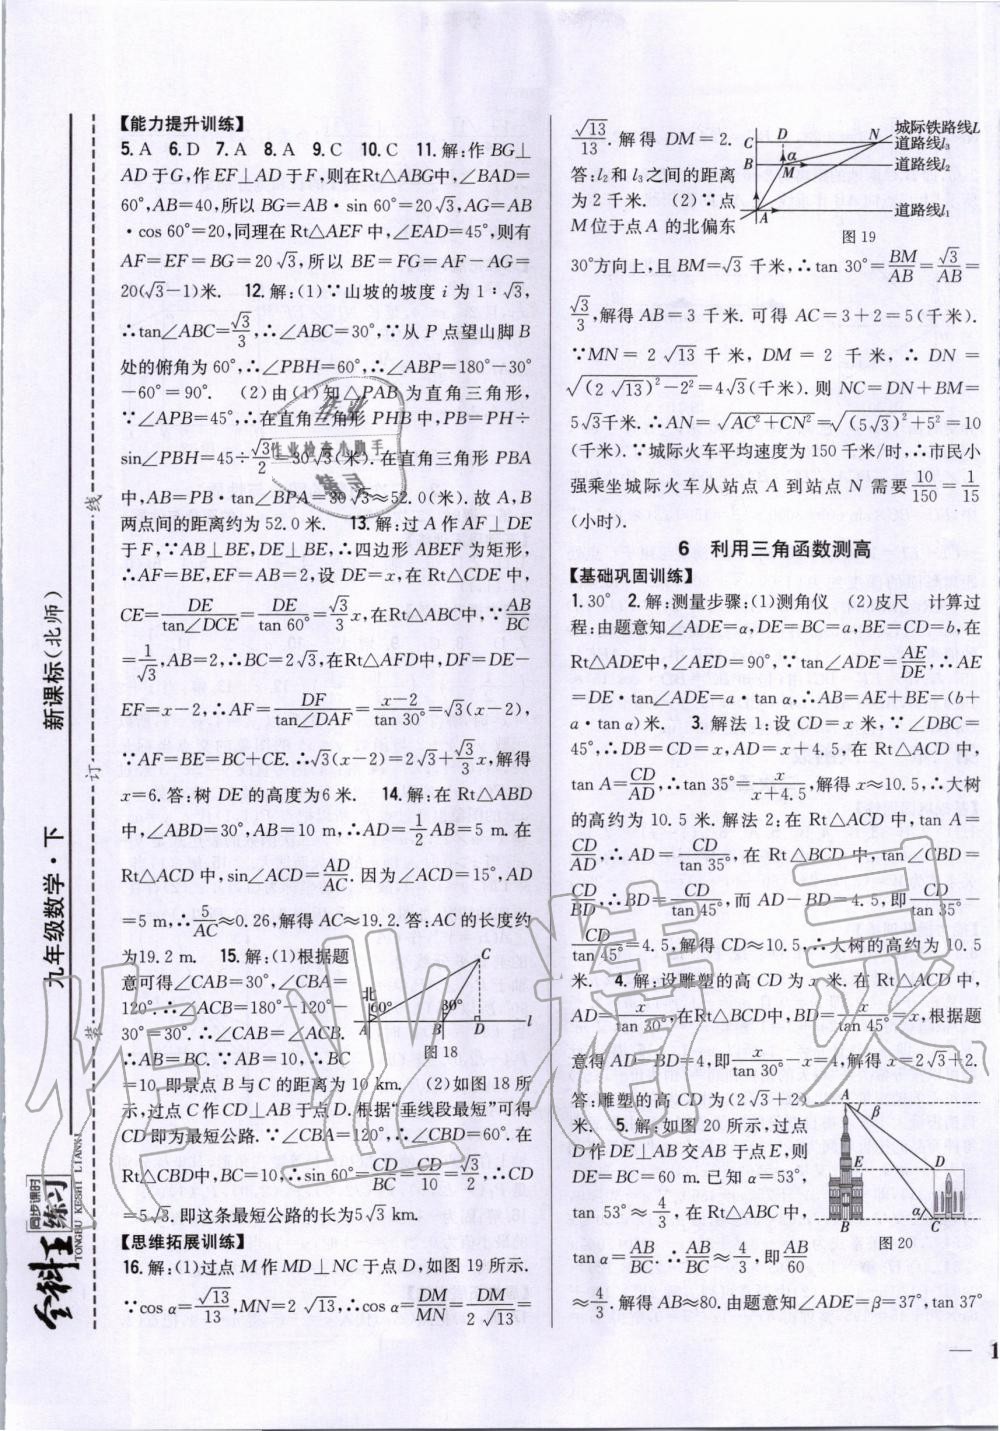 【能力提升训练】
5. A 6. D 7. A 8. A 9. C 10. C 11. 解:作 BG⊥
AD于G,作EF⊥AD于F,则在Rt△ABG中,∠BAD=
60°,AB=40,所以 BG=AB·sin 60°=20√3,AG=AB
·cos 60°=20,同理在 Rt△AEF 中,∠EAD=45°,则有
AF=EF=BG=20√3,所以 BE=FG=AF-AG=
20(√3-1)米. 12. 解:(1)∵山坡的坡度 i 为 1∶√3,
∴tan∠ABC=√3/3,∴∠ABC=30°,∵从 P 点望山脚 B
处的俯角为 60°,∴∠PBH=60°,∴∠ABP=180°-30°
-60°=90°. (2)由(1)知△PAB为直角三角形,
∵∠APB=45°,∴在直角三角形 PHB 中,PB=PH÷
sin∠PBH=45÷√3/2=30√3(米). 在直角三角形 PBA
中,AB=PB·tan∠BPA=30√3≈52.0(米). 故 A,B
两点间的距离约为 52.0 米. 13. 解:过 A 作 AF⊥DE
于 F,∵AB⊥BE,DE⊥BE,∴四边形 ABEF 为矩形,
∴AF=BE,EF=AB=2,设 DE=x,在 Rt△CDE 中,
CE=DE/tan∠DCE=DE/tan 60°=√3/3x,在Rt△ABC中,∵AB/BC
=1/√3,AB=2,∴BC=2√3,在Rt△AFD中,DF=DE-
EF=x-2,∴AF=DF/tan∠DAF=x-2/tan 30°=√3(x-2),
∵AF=BE=BC+CE.∴√3(x-2)=2√3+√3/3x,解得
x=6. 答:树 DE 的高度为6米. 14. 解:在 Rt△ABD
中,∠ABD=30°,AB=10 m,∴AD=1/2AB=5 m. 在
Rt△ACD 中,sin∠ACD=AD/AC. 因为∠ACD=15°,AD
=5 m,∴5/AC≈0.26,解得 AC≈19.2. 答:AC 的长度约
为19.2 m. 15. 解:(1)根据题
意可得∠CAB=30°,∠CBA=
120°.∴∠ACB=180°-120°-
30°=30°.∴∠CAB=∠ACB.
∴AB=BC.∵AB=10,∴BC
=10. 即景点 B 与 C 的距离为 10 km. (2)如图 18 所
示,过点 C 作 CD⊥AB 于点 D. 根据“垂线段最短”可得
CD 即为最短公路.∵∠CBA=120°,∴∠CBD=60°. 在
Rt△CBD中,BC=10,∴sin 60°=CD/BC=CD/10=√3/2,∴CD
=5√3. 即这条最短公路的长为5√3 km.
【思维拓展训练】
16. 解:(1)过点 M 作 MD⊥NC 于点 D,如图 19 所示.
∵cos α=√13/13,MN=2√13,∴cos α=DM/MN=DM/2√13=
北
60°
30°
A
B
C
D
l
图 18
√13/13. 解得 DM=2.
答:l₂和 l₃之间的距离
为 2 千米. (2)∵点
M 位于点 A 的北偏东
30°方向上,且 BM=√3 千米,∴tan 30°=BM/AB=√3/AB=
√3/3,解得 AB=3 千米. 可得 AC=3+2=5(千米).
∵MN=2√13 千米,DM=2 千米,∴DN=
√(2√13)²-2²=4√3(千米). 则 NC=DN+BM=
5√3千米.∴AN=√AC²+CN²=√(5√3)²+5²=10
(千米).∵城际火车平均速度为 150 千米/时,∴市民小
强乘坐城际火车从站点 A 到站点 N 需要10/150=1/15
(小时).
C
D
N
城际铁路线L
道路线l₃
B
α
M
道路线l₂
A
道路线l₁
图 19
6 利用三角函数测高
【基础巩固训练】
1. 30° 2. 解:测量步骤:(1)测角仪 (2)皮尺 计算过
程:由题意知∠ADE=α,DE=BC=a,BE=CD=b,在
Rt△ADE中,∠AED=90°,∵tan∠ADE=AE/DE,∴AE
=DE·tan∠ADE=a·tan α,∴AB=AE+BE=(b+
a·tan α)米. 3. 解法 1:设 CD=x 米,∵∠DBC=
45°,∴DB=CD=x,AD=x+4.5,在 Rt△ACD 中,
tan A=CD/AD,∴tan 35°=x/x+4.5,解得 x≈10.5,∴大树
的高约为 10.5 米. 解法 2:在 Rt△ACD 中,tan A=
CD/AD,∴AD=CD/tan 35°,在 Rt△BCD 中,tan∠CBD=
CD/BD,∴BD=CD/tan 45°,而 AD-BD=4.5,即CD/tan 35°-
CD/tan 45°=4.5,解得 CD≈10.5,∴大树的高约为 10.5
米. 4. 解:设雕塑的高 CD 为 x 米. 在 Rt△ACD 中,
AD=x/tan 30°,在Rt△BCD中,BD=x/tan 45°=x,根据题
意得 AD-BD=4,即x/tan 30°-x=4,解得 x=2√3+2.
答:雕塑的高 CD 为(2√3+2)
米. 5. 解:如图 20 所示,过点
D 作 DE⊥AB 交 AB 于点 E,则
DE=BC=60 m. 已知 α=53°,
tan 53°≈4/3,在 Rt△ABC中,
tan α=AB/BC.∴AB/BC≈4/3,即AB/60
≈4/3. 解得 AB≈80. 由题意知∠ADE=β=37°,tan 37°
A
β
E
D
α
B
C
图 20
九年级数学·下 新课标(北师)
装 订 线
同步课时
全科王
练习
TONGBU KESHI LIANXI
作业
作业检查小助手
精灵
作业精灵
— 1